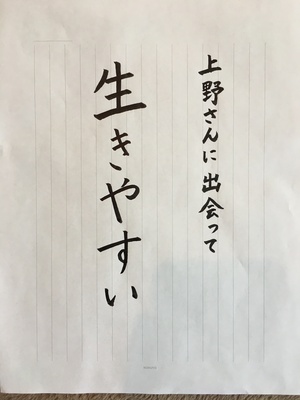 上野さんに出会って
生きやすい